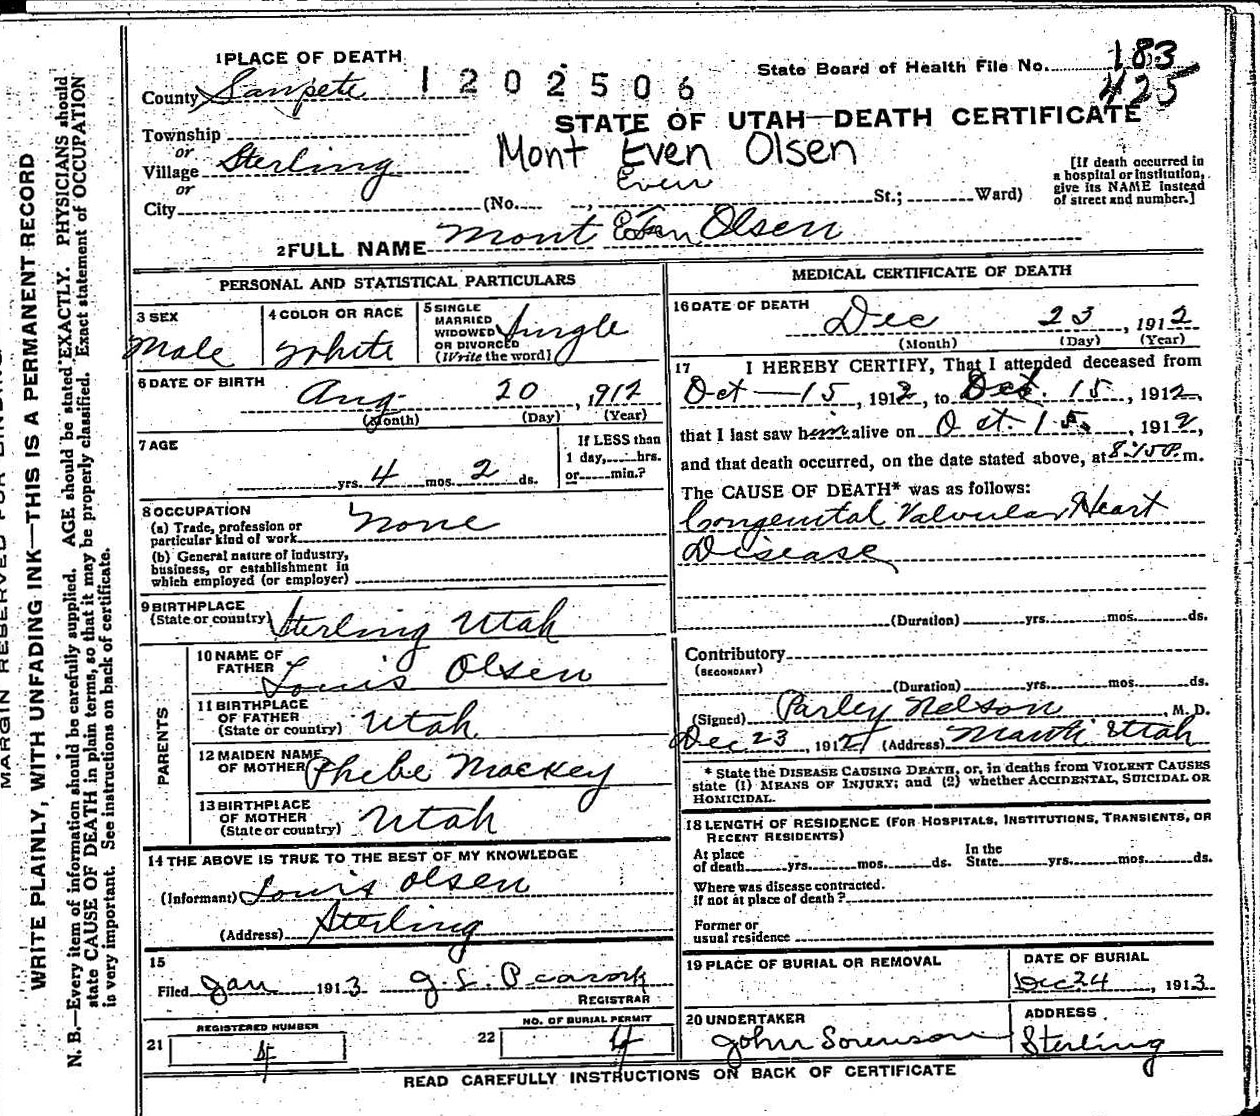 1 PLACE OF DEATH
County Sanpete 1202506
State Board of Health File No. 183
425
STATE OF UTAH—DEATH CERTIFICATE
Township
or
Village Sterling
or
City (No. St.; Ward)
Mont Even Olsen
Even
[If death occurred in
a hospital or institution,
give its NAME instead
of street and number.]
2 FULL NAME Mont Olsen
PERSONAL AND STATISTICAL PARTICULARS
3 SEX
Male
4 COLOR OR RACE
White
5 SINGLE
MARRIED
WIDOWED
OR DIVORCED
(Write the word)
Single
6 DATE OF BIRTH
Aug 20, 1912
(Month) (Day) (Year)
7 AGE
yrs. 4 mos. 2 ds.
If LESS than
1 day, hrs.
or min.?
8 OCCUPATION
(a) Trade, profession or
particular kind of work None
(b) General nature of industry,
business, or establishment in
which employed (or employer)
9 BIRTHPLACE
(State or country) Sterling Utah
PARENTS
10 NAME OF
FATHER Louis Olsen
11 BIRTHPLACE
OF FATHER
(State or country) Utah
12 MAIDEN NAME
OF MOTHER Phebe Mackey
13 BIRTHPLACE
OF MOTHER
(State or country) Utah
14 THE ABOVE IS TRUE TO THE BEST OF MY KNOWLEDGE
(Informant) Louis Olsen
(Address) Sterling
15
Filed Jan 1913 J. L. Peacock
REGISTRAR
21 REGISTERED NUMBER
4
22 NO. OF BURIAL PERMIT
4
MEDICAL CERTIFICATE OF DEATH
16 DATE OF DEATH
Dec 23, 1912
(Month) (Day) (Year)
17 I HEREBY CERTIFY, That I attended deceased from
Oct—15, 1912, to Oct. 15, 1912,
that I last saw him alive on Oct. 15, 1912,
and that death occurred, on the date stated above, at m.
The CAUSE OF DEATH* was as follows:
Congenital Valvular Heart
Disease
(Duration) yrs. mos. ds.
Contributory
(SECONDARY)
(Duration) yrs. mos. ds.
(Signed) Parley Nelson M. D.
Dec 23, 1912 (Address) Manti Utah
* State the DISEASE CAUSING DEATH, or, in deaths from VIOLENT CAUSES
state (1) MEANS OF INJURY; and (2) whether ACCIDENTAL, SUICIDAL OR
HOMICIDAL.
18 LENGTH OF RESIDENCE (FOR HOSPITALS, INSTITUTIONS, TRANSIENTS, OR
RECENT RESIDENTS)
At place
of death yrs. mos. ds.
In the
State yrs. mos. ds.
Where was disease contracted.
If not at place of death?
Former or
usual residence
19 PLACE OF BURIAL OR REMOVAL
DATE OF BURIAL
Dec 24, 1913
20 UNDERTAKER
John Sorenson
ADDRESS
Sterling
READ CAREFULLY INSTRUCTIONS ON BACK OF CERTIFICATE
MARGIN RESERVED FOR BINDING
WRITE PLAINLY, WITH UNFADING INK—THIS IS A PERMANENT RECORD
N. B.—Every item of information should be carefully supplied. AGE should be stated EXACTLY. PHYSICIANS should
state CAUSE OF DEATH in plain terms, so that it may be properly classified. Exact statement of OCCUPATION
is very important. See instructions on back of certificate.